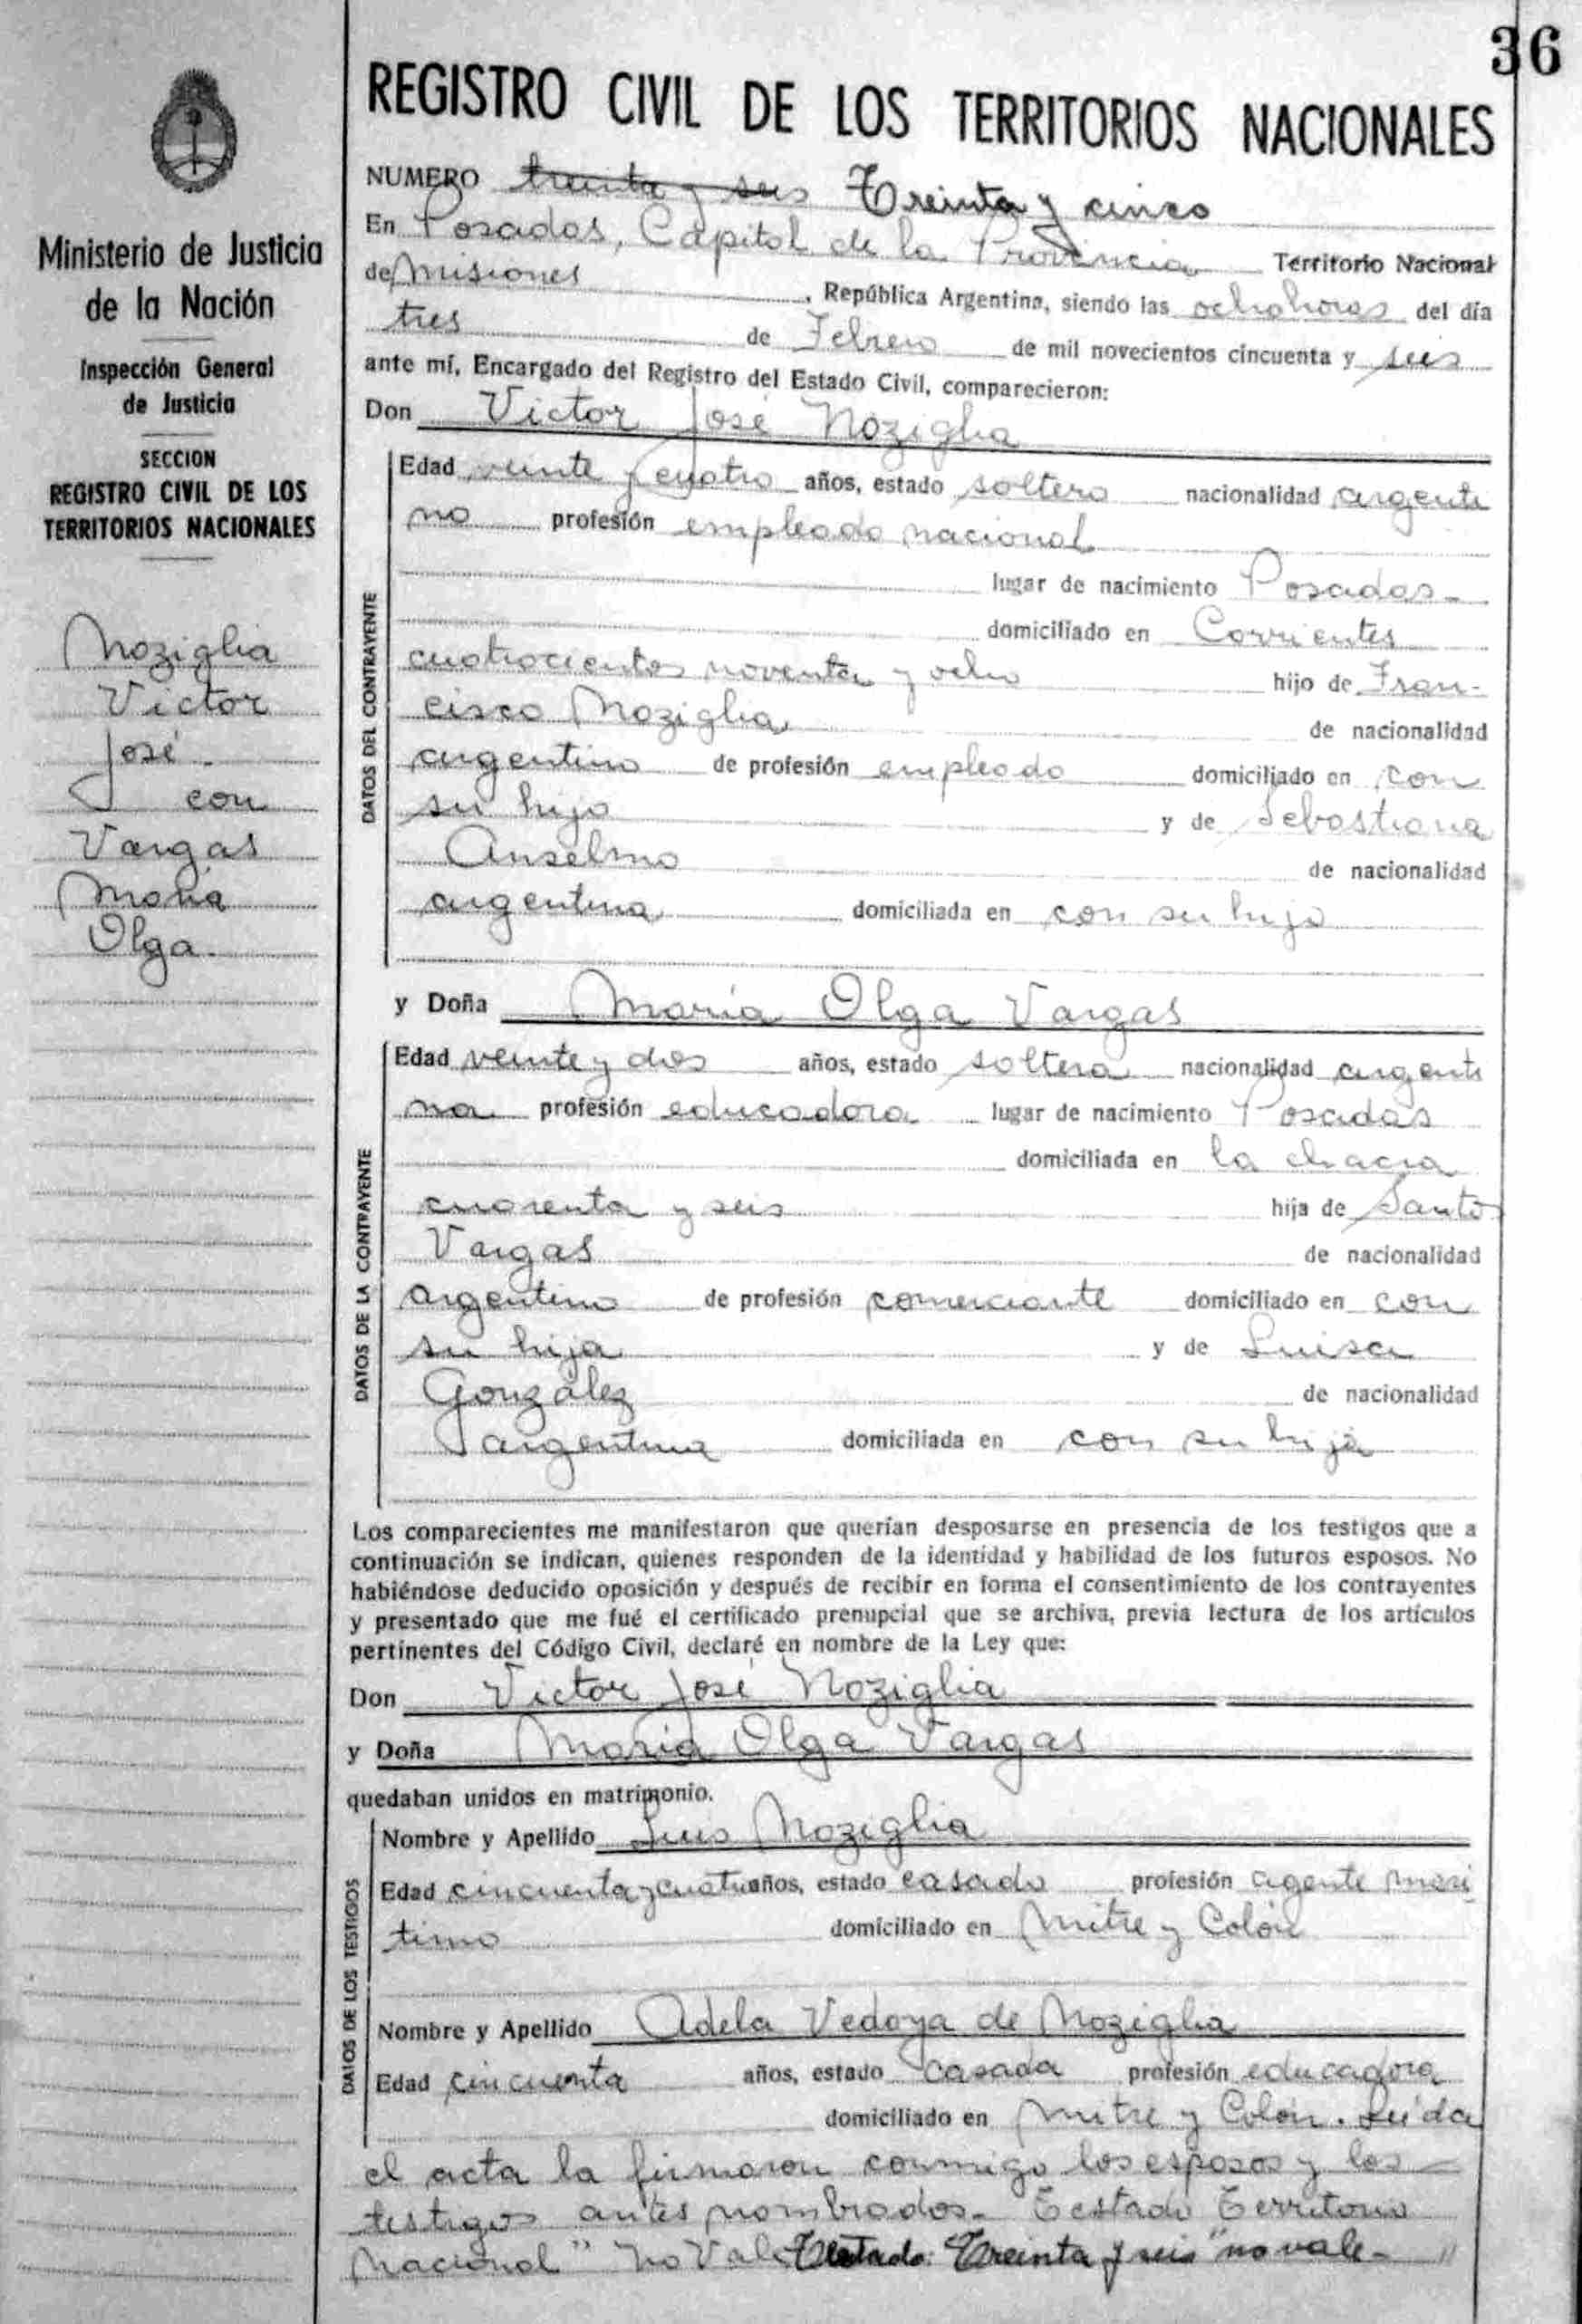 36
REGISTRO CIVIL DE LOS TERRITORIOS NACIONALES
Ministerio de Justicia
de la Nación
Inspección General
de Justicia
SECCION
REGISTRO CIVIL DE LOS
TERRITORIOS NACIONALES
Noziglia
Victor
José.
con
Vargas
María
Olga.
NUMERO treinta y seis Treinta y cinco
En Posadas, Capital de la Provincia Territorio Nacional
de Misiones, República Argentina, siendo las ocho horas del día
tres de Febrero de mil novecientos cincuenta y seis
ante mí, Encargado del Registro del Estado Civil, comparecieron:
Don Victor José Noziglia
DATOS DEL CONTRAYENTE
Edad veinte y cuatro años, estado soltero nacionalidad argenti
no profesión empleado nacional
lugar de nacimiento Posadas-
domiciliado en Corrientes
cuatrocientos noventa y ocho hijo de Fran-
cisco Noziglia de nacionalidad
argentino de profesión empleado domiciliado en con
su hijo y de Sebastiana
Anselmo de nacionalidad
argentina domiciliada en con su hijo
y Doña María Olga Vargas
DATOS DE LA CONTRAYENTE
Edad veinte y dos años, estado soltera nacionalidad argenti
na profesión educadora lugar de nacimiento Posadas
domiciliada en la chacra
cuarenta y seis hija de Santos
Vargas de nacionalidad
argentino de profesión comerciante domiciliado en con
su hija y de Luisa
González de nacionalidad
argentina domiciliada en con su hija
Los comparecientes me manifestaron que querían desposarse en presencia de los testigos que a
continuación se indican, quienes responden de la identidad y habilidad de los futuros esposos. No
habiéndose deducido oposición y después de recibir en forma el consentimiento de los contrayentes
y presentado que me fué el certificado prenupcial que se archiva, previa lectura de los artículos
pertinentes del Código Civil, declaré en nombre de la Ley que:
Don Victor José Noziglia
y Doña María Olga Vargas
quedaban unidos en matrimonio.
DATOS DE LOS TESTIGOS
Nombre y Apellido Luis Noziglia
Edad cincuenta y cuatro años, estado casado profesión agente marí
timo domiciliado en Mitre y Colón
Nombre y Apellido Adela Vedoya de Noziglia
Edad cincuenta años, estado casada profesión educadora
domiciliado en Mitre y Colón. Leída
el acta la firmaron conmigo los esposos y los
testigos antes nombrados- Testado Territorio
Nacional" No Vale Testado: "Treinta y seis" no vale-